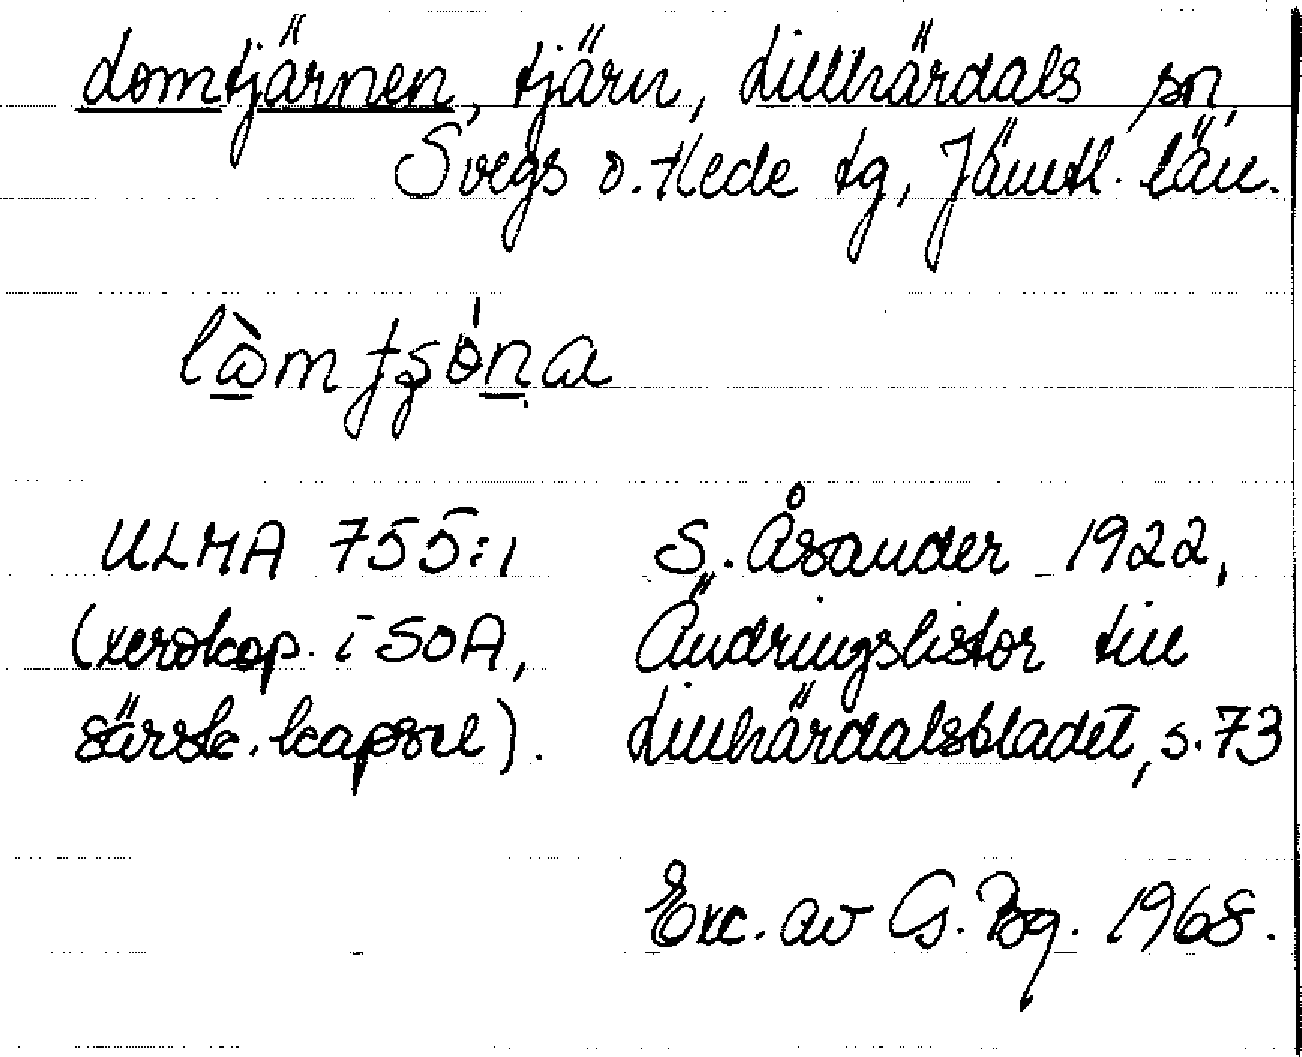 Lomtjärnen, tjärn, Lillhärdals sn,
Svegs o. Hede tg, Jämtl. län.
ULMA 755:1 S. Åsander 1922,
(xerokop. i SOA, Ändringslistor till
särsk. kapsel). Lillhärdalsbladet, s. 73
Exc. av G. Bg. 1968.